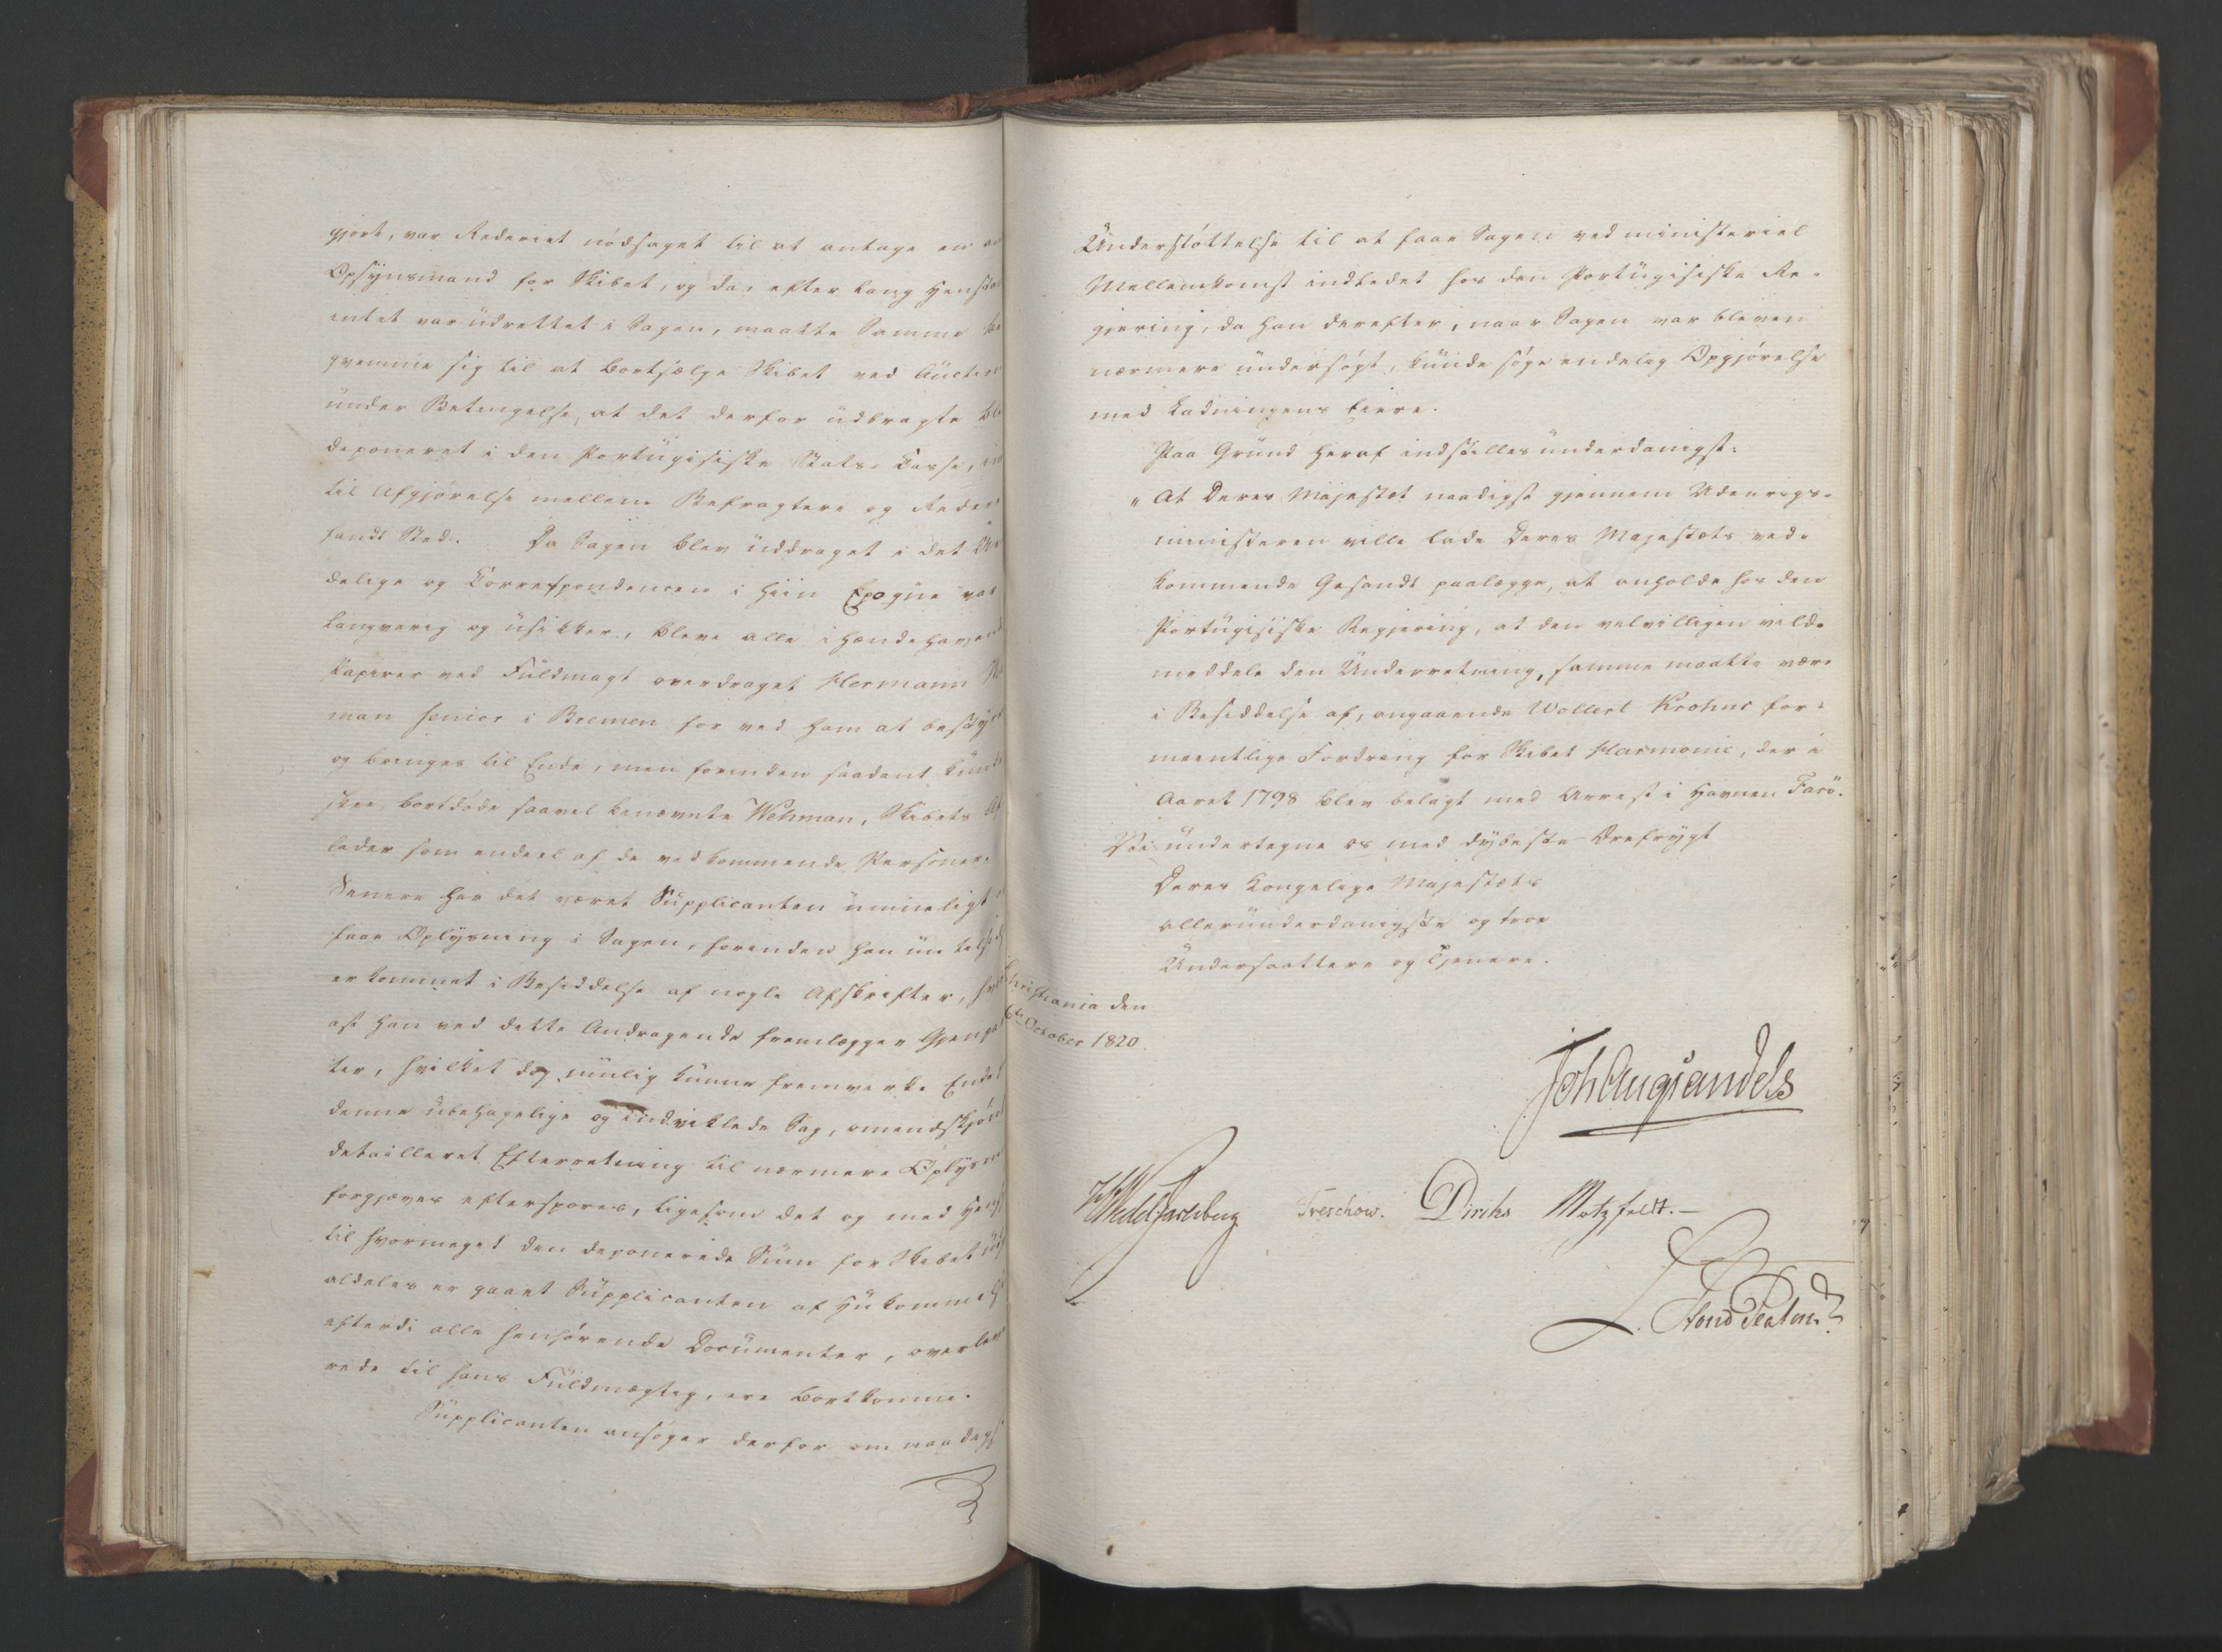 gjort, var Rederiet nödsaget til at antage en
Opsynsmand for Skibet, og da, efter lang Henstan
intet var udrettet i Sagen, maatte Samme be
qvemme sig til at bortsælge Skibet ved Auction
under Betingelse, at det derfor udbragte blev
deponeret i den Portugisiske Stats-Casse, ind
til Afgjörelse mellem Befragtere og Rederi
fandt Sted. Da Sagen blev uddraget i det Uen
delige og Correspondencen i hiin Epoqve var
langvarig og usikker, bleve alle ihændehavend
Papirer ved Fuldmagt overdraget Hermann We
man senior i Bremen for ved ham at bestyre
og bringes til Ende, men forinden saadant kunde
skee, bortdöde saavel benævnte Wehman, Skibets Af
lader som endeel af de vedkommende Personer.
Senere har det været Supplicanten umueligt
faae Oplysning i Sagen, forinden han nu
er kommet i Besiddelse af nogle Afskrifter, hvor
af han ved dette Andragende fremlægger Gjenpar
ter, hvilket dog muelig kunne fremvirke Ende
denne ubehagelige og indviklede Sag, omendskjön
detailleret Efterretning til nærmere Oplysn
forgjæves efterspores, ligesom det og med Hens
til hvormeget den deponerede Sum for Skibet
aldeles er gaaet Supplicanten af Hukommels
efterdi alle henhörende Documenter, overleve
rede til hans Fuldmægtig, ere bortkomne.
Supplicanten ansöger derfor om naadigst
Understöttelse til at faae Sagen ved ministeriel
Mellemkomst indledet hos den Portugisiske Re-
gjering, da han derefter, naar Sagen var bleven
nærmere undersögt, kunde söge endelig Opgjörelse
med Ladningens Eiere.
Paa Grund heraf indstilles underdanigst:
"At Deres Majestæt naadigst gjennem Udenrigs-
ministeren ville lade Deres Majestæts ved-
kommende Gesandt paalægge, at anholde hos den
Portugisiske Regjering, at den velvilligen vilde
meddele den Underretning, samme maatte være
i Besiddelse af, angaaende Wollert Krohns for-
meentlige Fordring for Skibet Harmonie, der i
Aaret 1798 blev belagt med Arrest i Havnen Farö.
Vi undertegne os med dybeste Ærefrygt
Deres Kongelige Majestæts
allerunderdanigste og troe
Undersaattere og Tjenere.
Christiania den
6te October 1820.
Joh Aug Sandels
HWedel Jarlsberg Treschow. Diriks Motzfeldt.